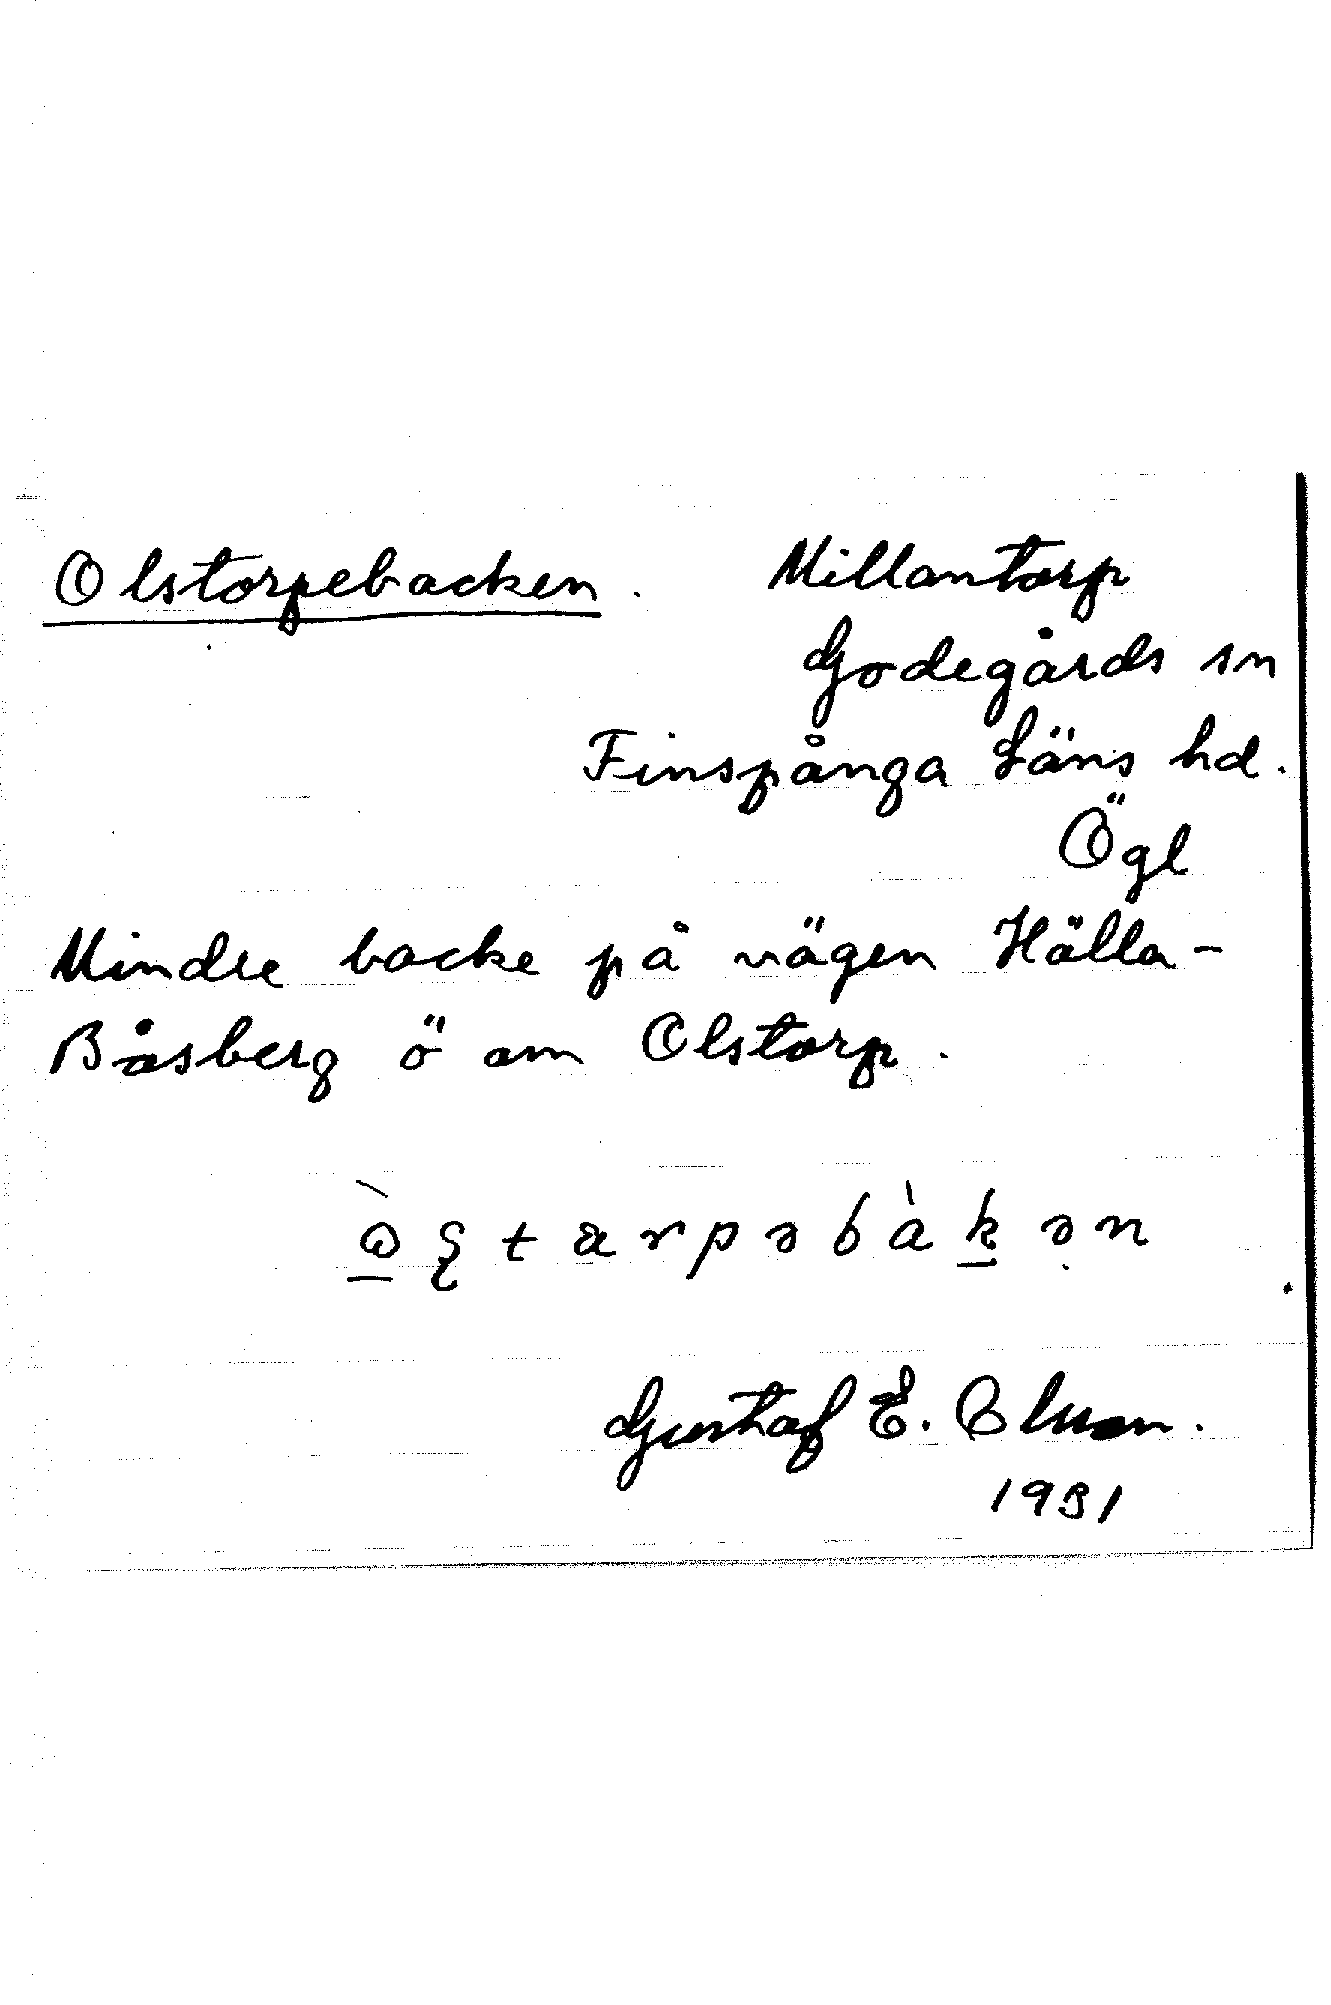 Olstorpebacken. Millantorp
Godegårds sn
Finspånga Läns hd.
Ögl
Mindre backe på vägen Hälla-
Båsberg ö om Olstorp.
Gustaf E.
1931